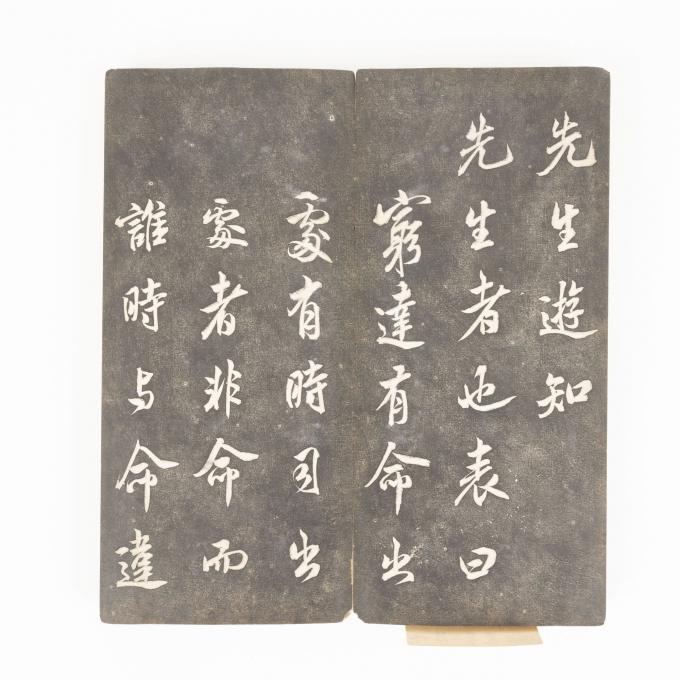 先生遊知
先生者也表曰
窮達有命出
處有時司出
處者非命而
誰時与命違